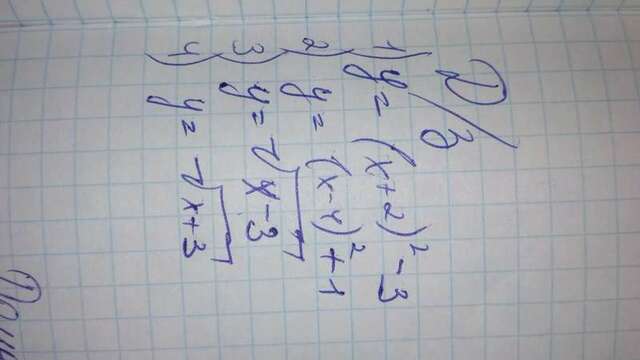 Д/З
1) y = (x+2)² - 3
2) y = (x-4)² + 1
3) y = √x-3
4) y = √x+3